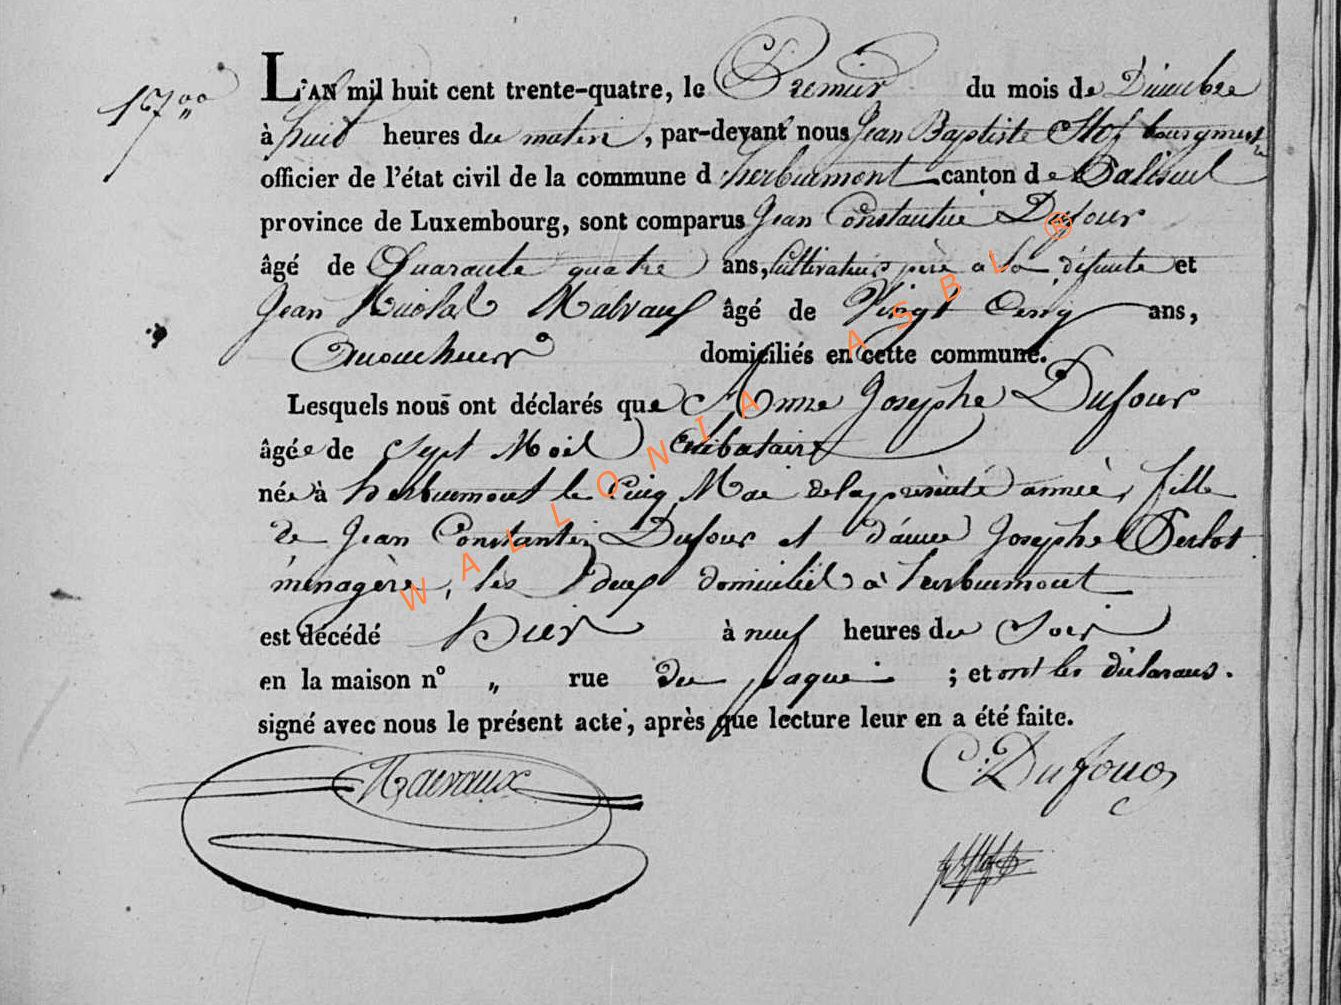 17
L'AN mil huit cent trente-quatre, le Premier du mois de Décembre
à huit heures du matin, par-devant nous Jean Baptiste Stof bourgmestre
officier de l'état civil de la commune d'herbeumont canton de Paliseul
province de Luxembourg, sont comparus Jean Constantin Dufour
âgé de Quarante quatre ans, Cultivateur père a la défunte et
Jean Nicolas Malvaux âgé de Vingt Cinq ans,
domiciliés en cette commune.
Lesquels nous ont déclarés que Anne Josephe Dufour
âgée de Sept Mois Celibataire
née à herbeumont le Cinq Mai de la présente année, fille
de Jean Constantin Dufour et d'anne Josephe Perlot
ménagère, les deux domiciliés à herbeumont
est décédé hier à neuf heures du Soir
en la maison n° „ rue du paquis ; et ont les déclarans.
signé avec nous le présent acte, après que lecture leur en a été faite.
Malvaux C: Dufour
WALLONIA ASBL ®